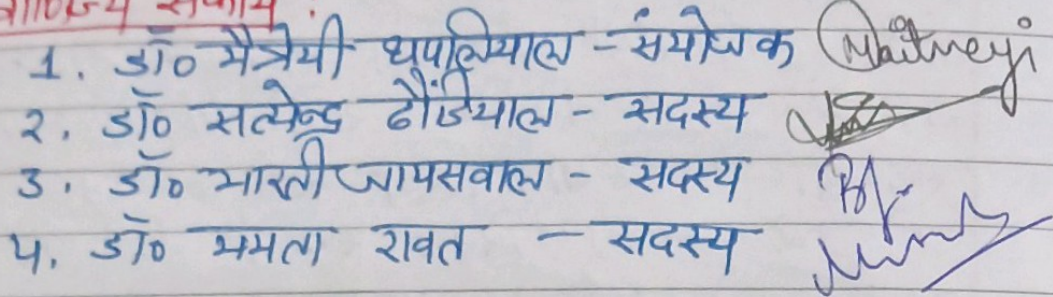 वाणिज्य संकाय :
1. डॉ० मैत्रेयी थपलियाल - संयोजक Maitreyi
2. डॉ० सत्येन्द्र ढौंडियाल - सदस्य
3. डॉ० भारती जायसवाल - सदस्य
4. डॉ० ममता रावत - सदस्य